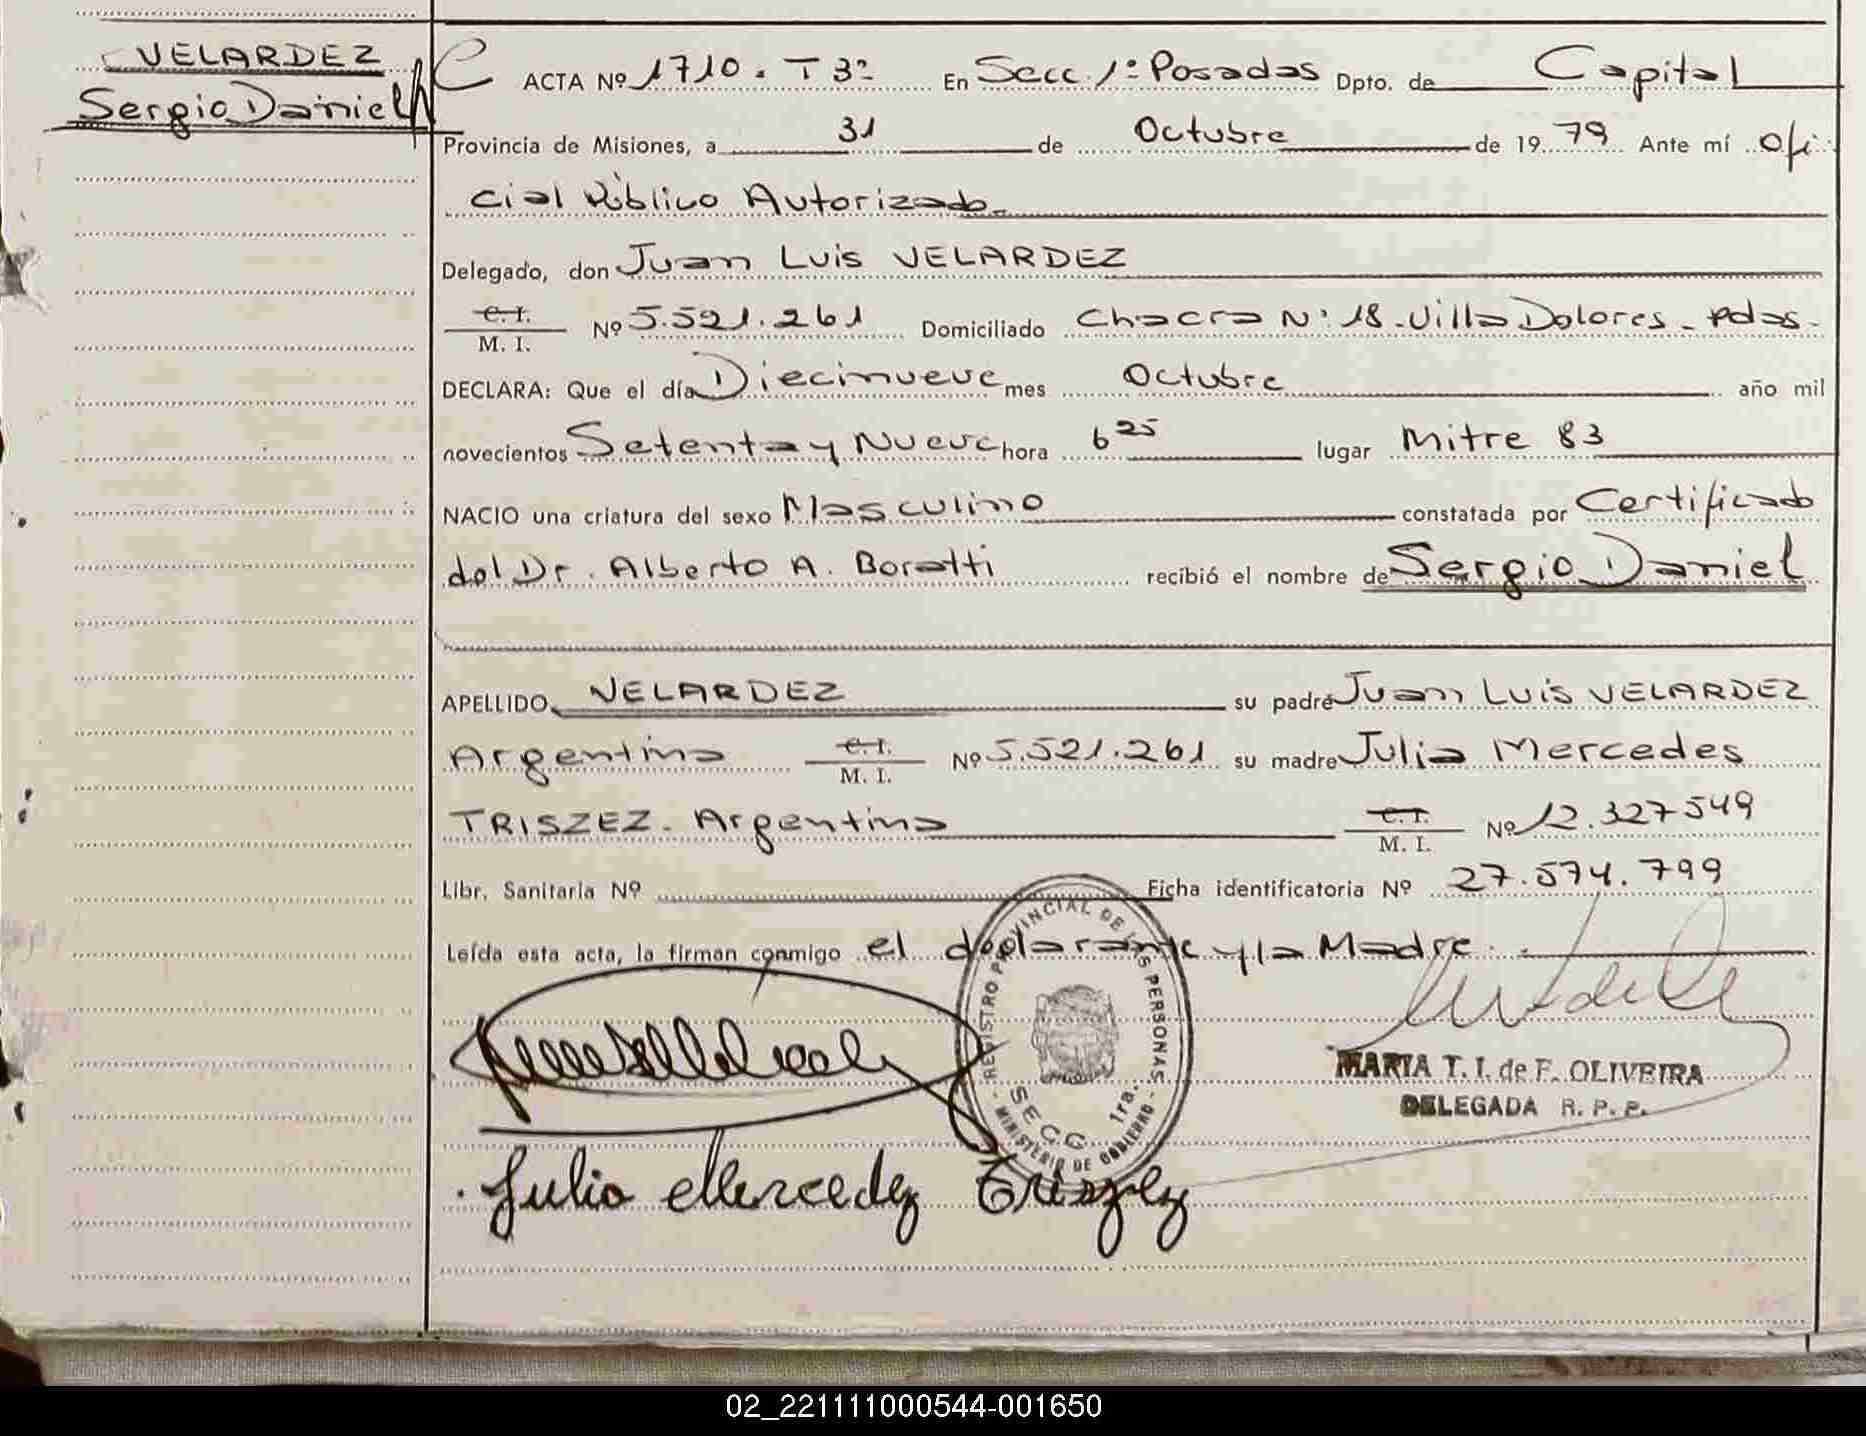 VELARDEZ
Sergio Daniel
ACTA Nº 1710. T 3º En Secc. 1º Posadas Dpto. de Capital
Provincia de Misiones, a 31 de Octubre de 19 79 Ante mí Ofi
cial Público Autorizado.
Delegado, don Juan Luis VELARDEZ
C.I.
M. I. Nº 5.521.261 Domiciliado Chacra Nº 18 - Villa Dolores - Pdas.
DECLARA: Que el día Diecinueve mes Octubre año mil
novecientos Setenta y Nueve hora 6 25 lugar Mitre 83
NACIO una criatura del sexo Masculino constatada por Certificado
del Dr. Alberto A. Boratti recibió el nombre de Sergio Daniel
APELLIDO VELARDEZ su padre Juan Luis VELARDEZ
Argentino C.I.
M. I. Nº 5.521.261 su madre Julia Mercedes
TRISZEZ. Argentina C.I.
M. I. Nº 12.327549
Libr. Sanitaria Nº Ficha identificatoria Nº 27.574.799
Leída esta acta, la firman conmigo el declarante y la Madre.
REGISTRO PROVINCIAL DE LAS PERSONAS
SECC. 1ra.
- MINISTERIO DE GOBIERNO -
MARIA T. I. de F. OLIVEIRA
DELEGADA R. P. P.
Julia Mercedez Triszez
02_221111000544-001650